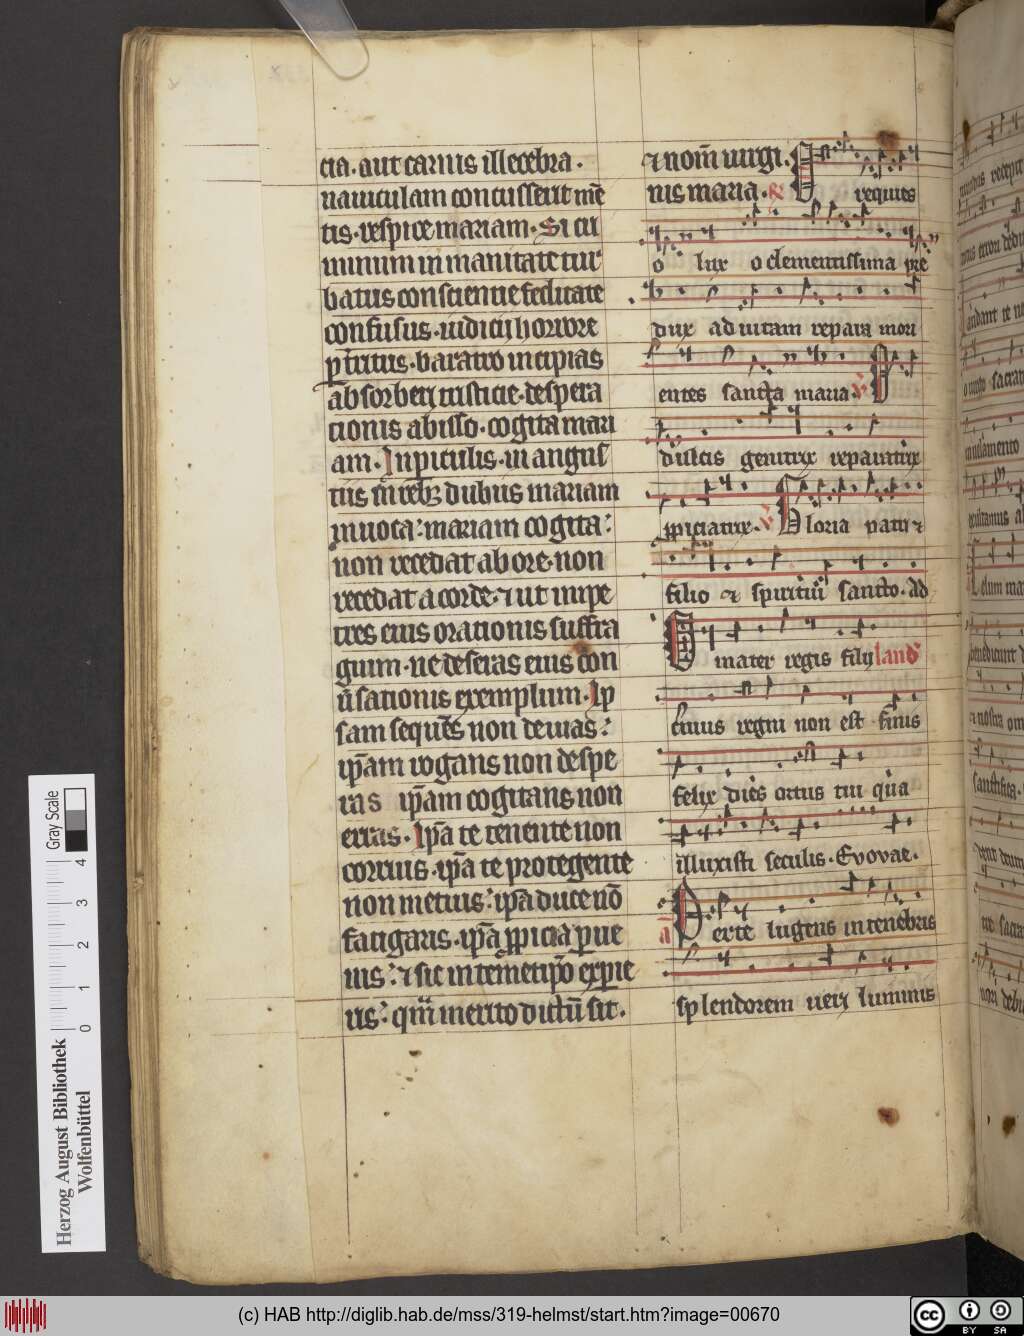 cia. aut carnis illecebra.
nauiculam concusserit mē
tis. respice mariam. Si cri
minum inmanitate tur
batus conscientie feditate
confusus. iudicij horrore
p̄tritus. baratro incipias
absorberi tristicie. despera
tionis abisso. cogita mari
am. In piculis. in angus
tiis ĩ rebꝫ dubiis mariam
inuoca: mariam cogita:
non recedat ab ore. non
recedat a corde. ⁊ ut inpe
tres eius orationis suffra
gium. ne deseras eius con
ũsationis exemplum. Ip
sam sequēs non deuias:
ip̄am rogans non despe
ras ip̄am cogitans non
erras. Ip̄a te tenente non
corruis. ip̄a te protegente
non metuis: ip̄a duce nō
fatigaris. ip̄a ꝓpicia pue
nis: ⁊ sic in temetip̄o expie
ris: qm̄ merito dictū sit.
⁊ nom̄ uirgi.
nis maria. R O requies
o lux o clementissima pre
dux ad uitam repara mori
entes sancta maria. V O
dulcis genitrix reparatrix
ꝓpiciatrix. V Gloria patri ⁊
filio ⁊ spiritui sancto. ad
O mater regis filij land
cuius regni non est finis
felix dies ortus tui qua
illuxisti seculis. Evovae.
a Per te lugens in tenebris
splendorem ueri luminis
Herzog August Bibliothek
Wolfenbüttel
0 1 2 3 4
Gray Scale
(c) HAB http://diglib.hab.de/mss/319-helmst/start.htm?image=00670
cc BY SA